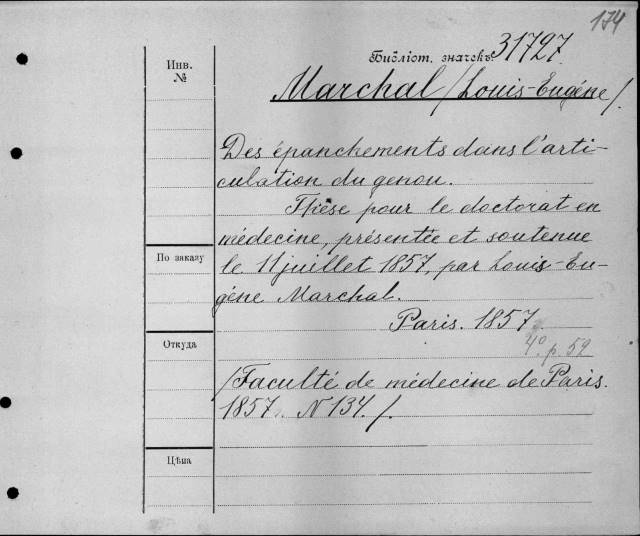 174
Библіот. значекъ 31727.
Инв.
№
Marchal /Louis-Eugéne/.
Des épanchements dans l'arti-
culation du genou.
Thèse pour le doctorat en
médecine, présentée et soutenue
По заказу
le 11 juillet 1857, par Louis-Eu-
géne Marchal.
Paris. 1857.
Откуда
4º. p. 52
/Faculté de médecine de Paris.
1857. N 134./.
Цѣна